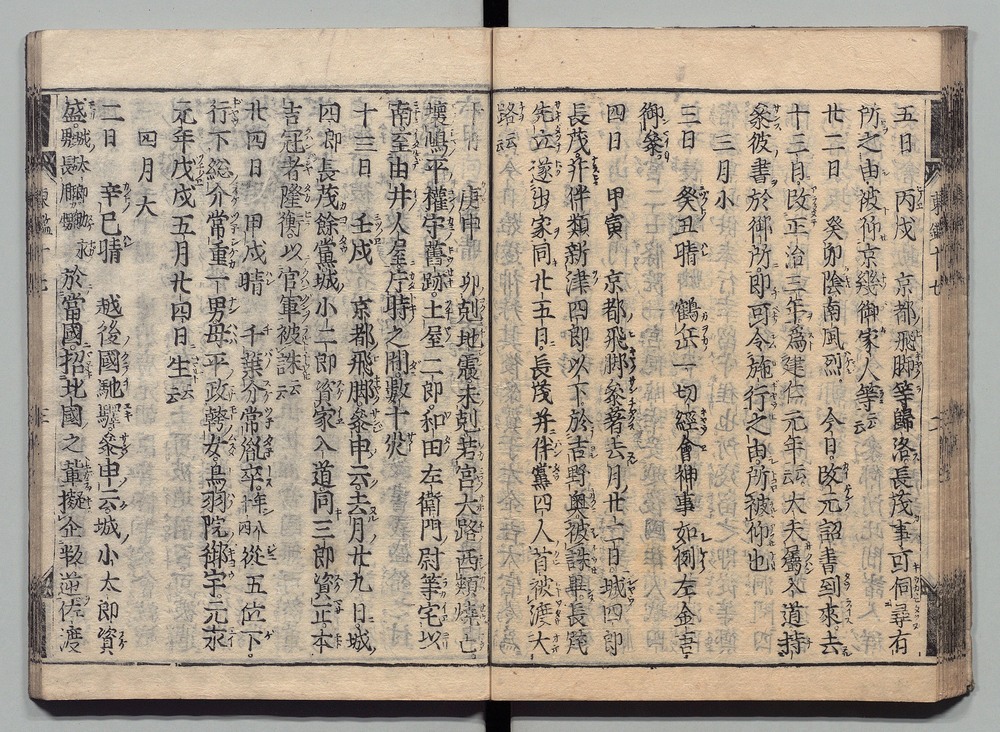 五日 丙戌 京都飛脚等歸洛長茂事可伺尋有
所之由被仰京畿御家人等云云
廿二日 癸卯陰南風烈 今日改元詔書到來去
十三日改正治三年爲建仁元年云云大夫屬入道持
參彼書於御所即可令施行之由所被仰也
三月小
三日 癸丑晴 鶴岳一切經會神事如例左金吾
御參
四日 甲寅 京都飛脚參著去月廿二日城四郎
長茂并伴類新津四郎以下於吉野奥被誅畢長茂
先立遂出家同廿五日長茂并伴黨四人首被渡大
路云云
十日 庚申晴 卯剋地震未剋若宮大路西頬燒亡
懷嶋平權守舊跡土屋二郎和田左衛門尉等宅以
南至由井人屋片時之間數十火
十三日 壬戌 京都飛脚參申云去月廿九日城
四郎長茂餘黨城小二郎資家入道同三郎資正本
吉冠者隆衡以官軍被誅云云
廿四日 甲戌晴 千葉介常胤卒年八十四從五位下
行下総介常重一男母平政幹女鳥羽院御宇元永
元年戊戌五月廿四日生云云
四月大
二日 辛巳晴 越後國馳驛參申云城小太郎資
盛城太郎助永男長茂甥於當國招北國之輩擬企叛逆佐渡
東鑑十七